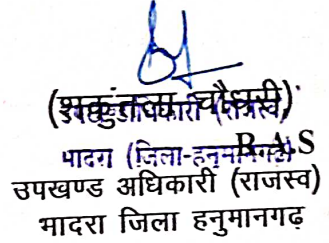 (शकुंतला चौधरी)
उपखण्ड अधिकारी (राजस्व)
भादरा (जिला-हनुमानगढ़)
R.A.S
उपखण्ड अधिकारी (राजस्व)
भादरा जिला हनुमानगढ़